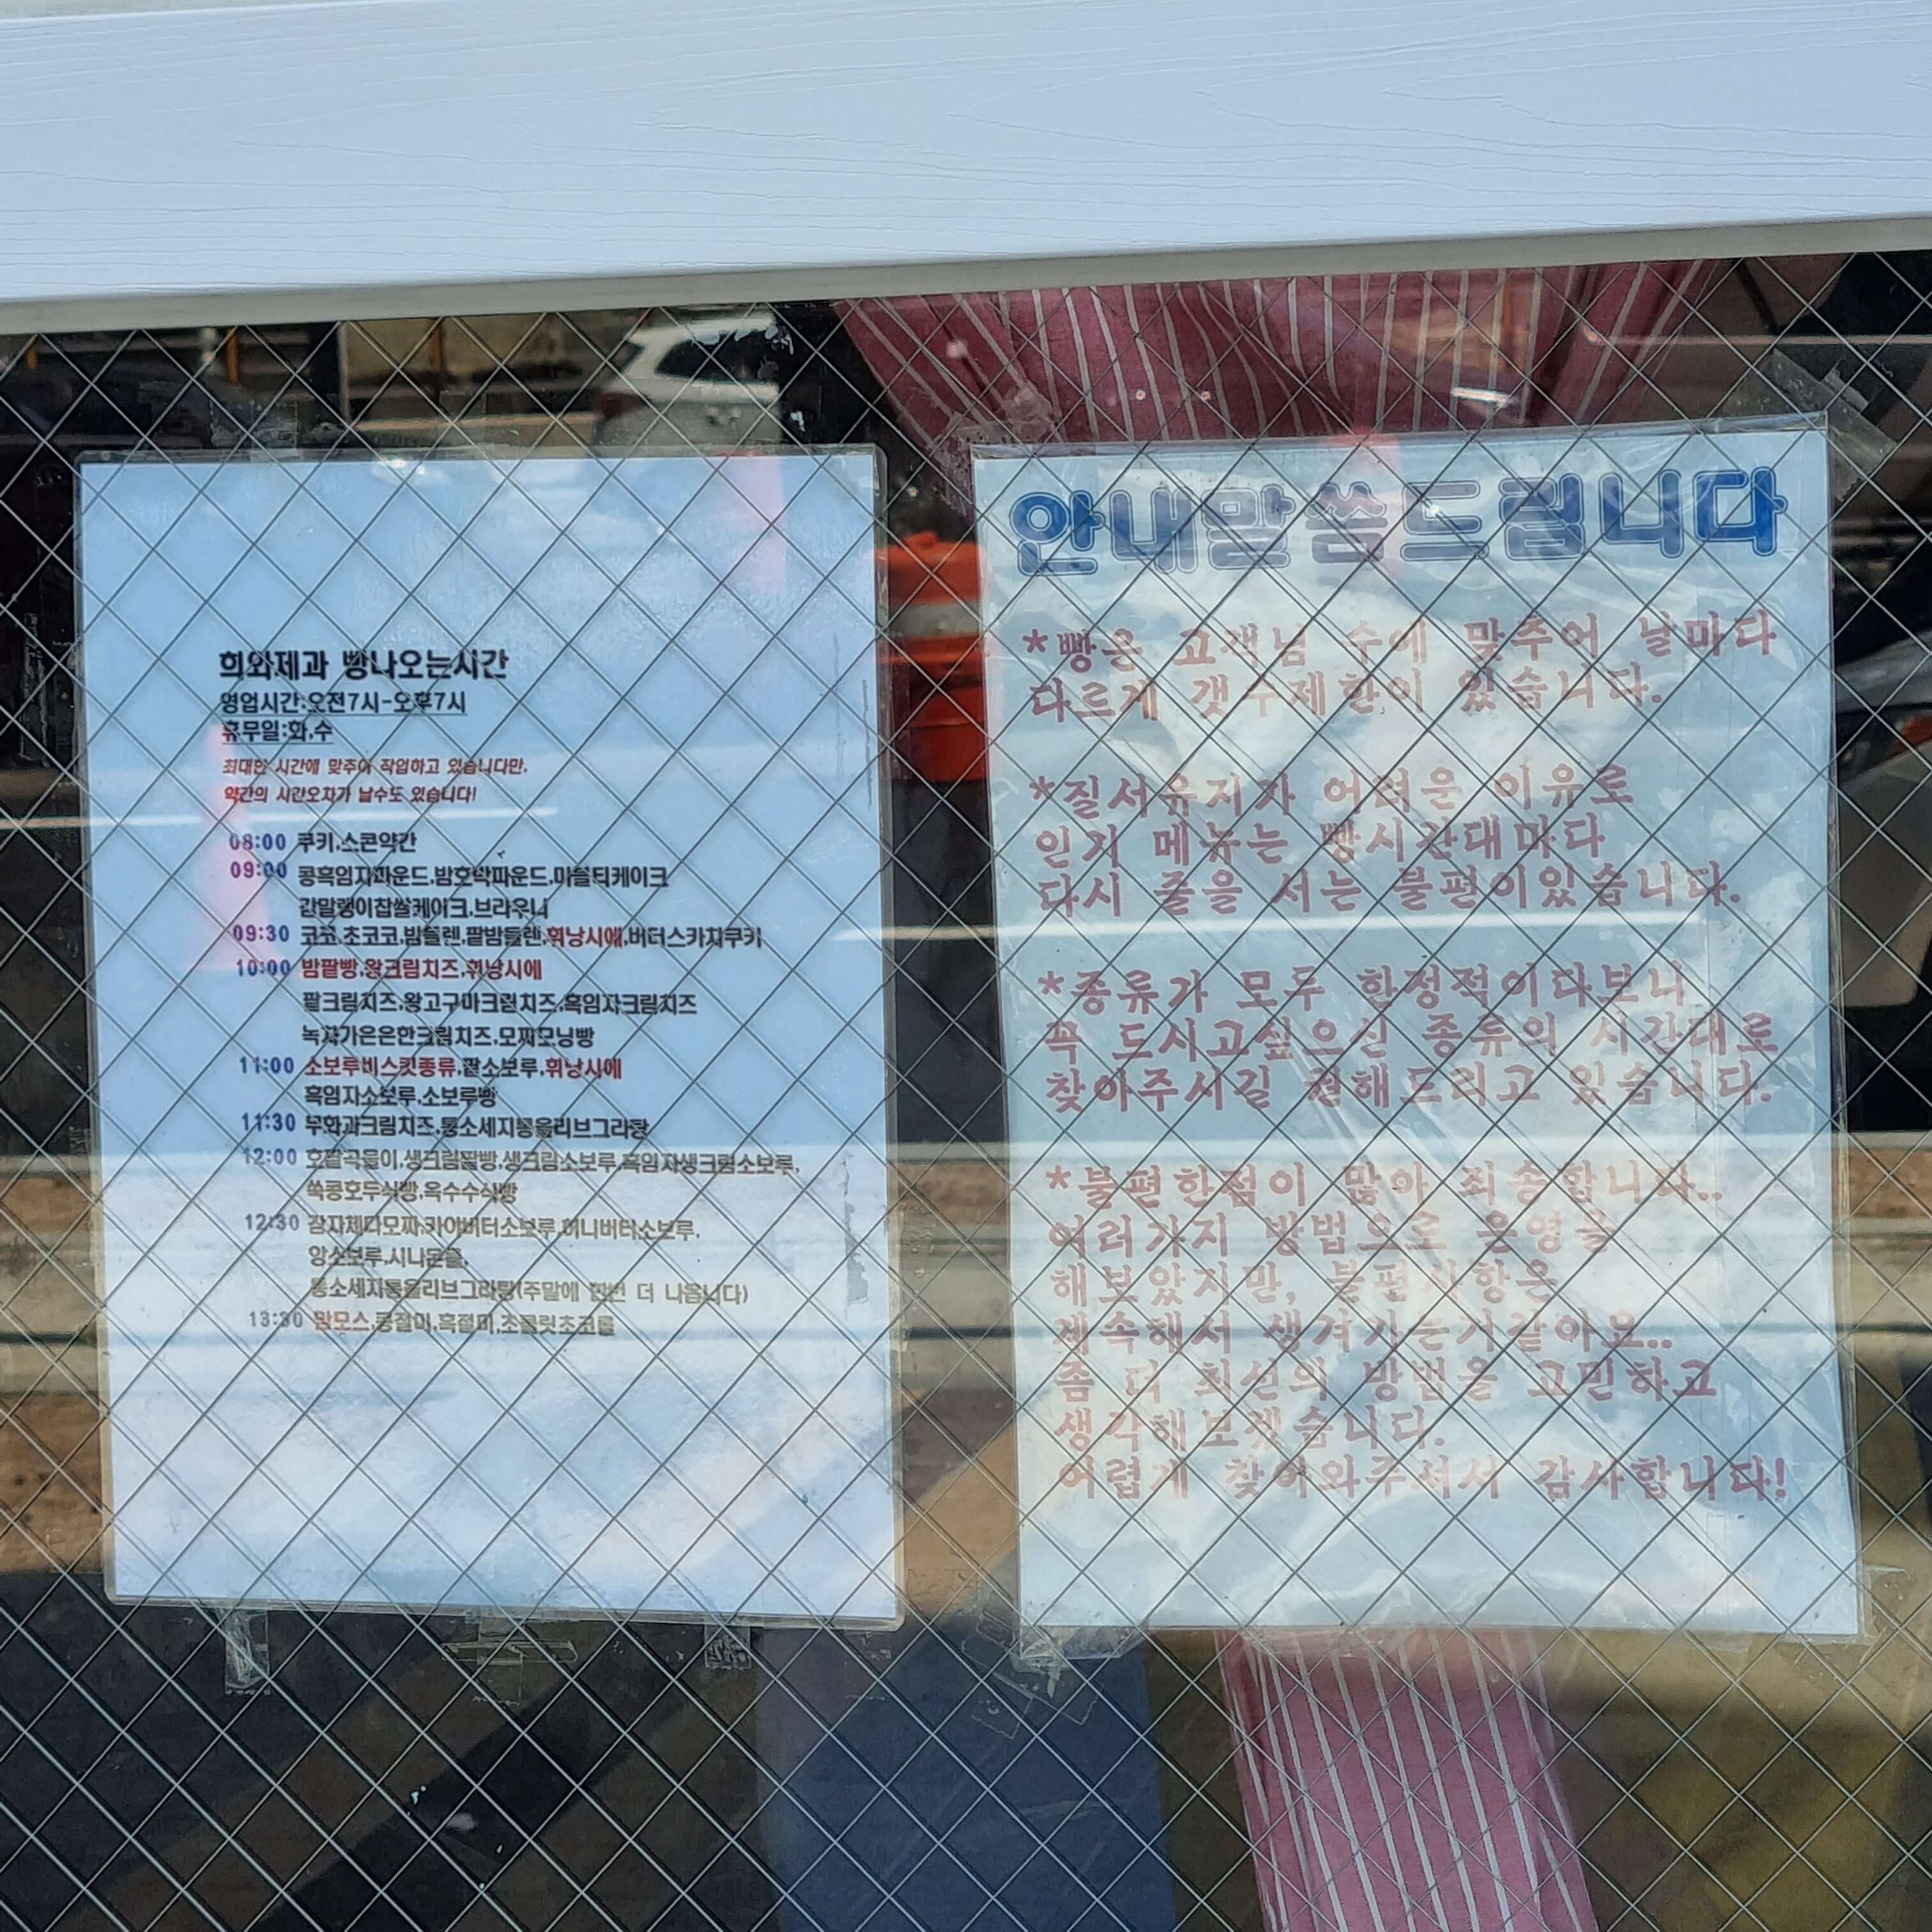 희와제과 빵나오는시간
영업시간:오전7시-오후7시
휴무일:화,수
최대한 시간에 맞추어 작업하고 있습니다만,
약간의 시간오차가 날수도 있습니다!
08:00 쿠키,스콘약간
09:00 콩흑임자파운드,밤호박파운드,마블티케이크
감말랭이찹쌀케이크,브라우니
09:30 코코,초코코,밤듬렌,팥밤듬렌,휘낭시에,버터스카치쿠키
10:00 밤팥빵,왕크림치즈,휘낭시에
팥크림치즈,왕고구마크림치즈,흑임자크림치즈
녹차가은은한크림치즈,모찌모닝빵
11:00 소보루비스킷종류,팥소보루,휘낭시에
흑임자소보루,소보루빵
11:30 무화과크림치즈,통소세지통올리브그라탕
12:00 호팥곡물이,생크림팥빵,생크림소보루,흑임자생크림소보루,
쑥콩호두식빵,옥수수식빵
12:30 감자체다모찌,카야버터소보루,허니버터소보루,
앙소보루,시나몬롤,
통소세지통올리브그라탕(주말에 한번 더 나옵니다)
13:30 맘모스,콩절미,흑절미,초콜릿초코롤
안내말씀드립니다
*빵은 고객님 수에 맞추어 날마다
다르게 갯수제한이 있습니다.
*질서유지가 어려운 이유로
인기 메뉴는 빵시간대마다
다시 줄을 서는 불편이있습니다.
*종류가 모두 한정적이다보니
꼭 드시고싶으신 종류의 시간대로
찾아주시길 권해드리고 있습니다.
*불편한점이 많아 죄송합니다..
여러가지 방법으로 운영을
해보았지만, 불편사항은
계속해서 생겨가는거같아요..
좀 더 최선의 방법을 고민하고
생각해보겠습니다.
어렵게 찾아와주셔서 감사합니다!